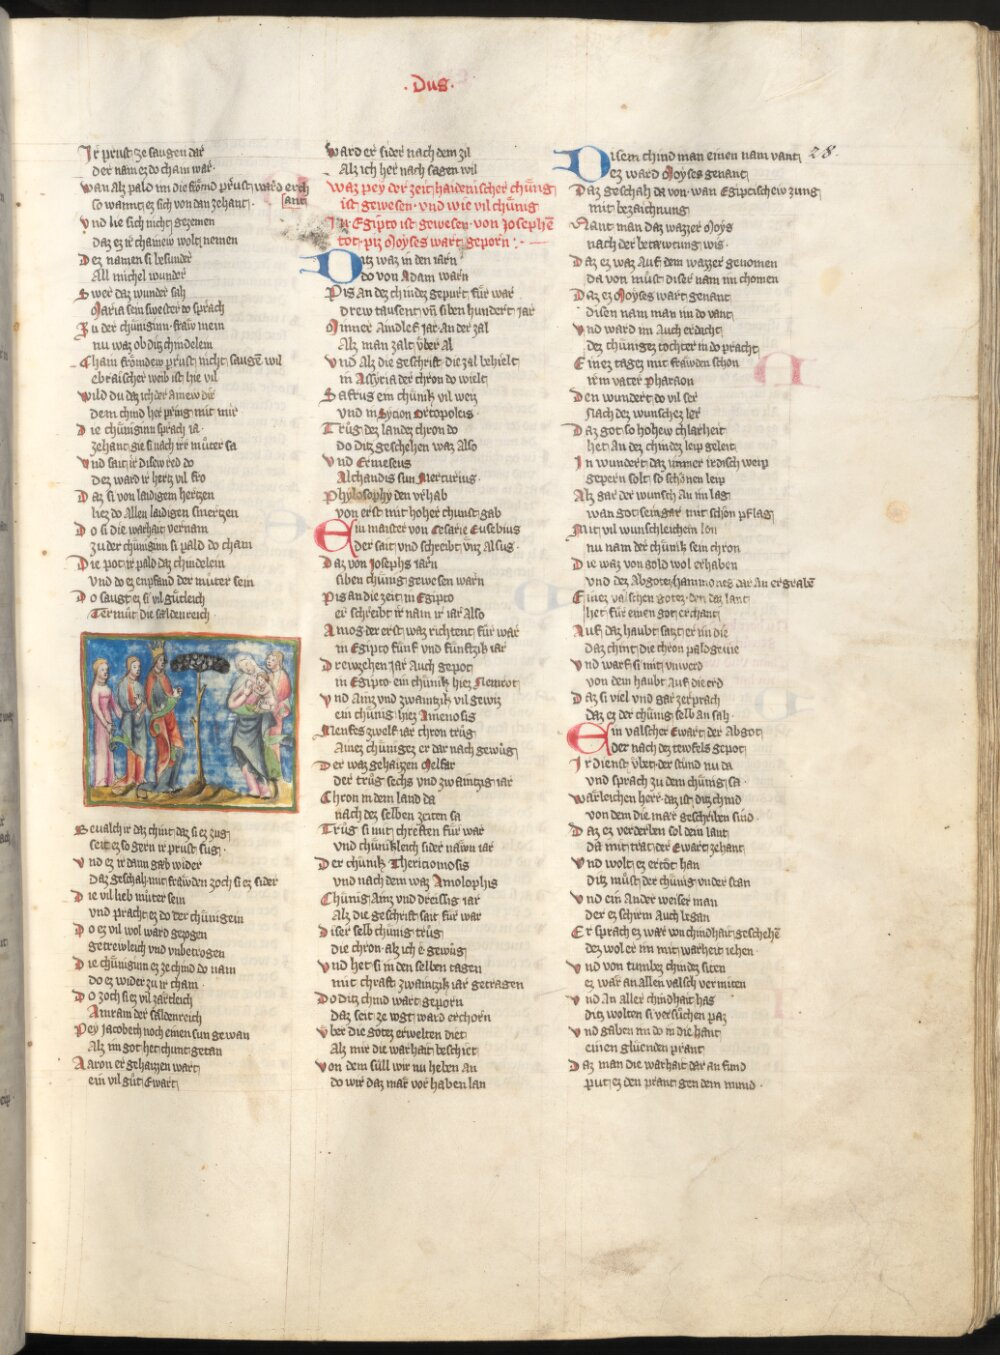 · Dus ·
28 ·
Ir prust ze saugen dar
der nam ez do cham war ·
wan Alz pald im die frömd prust ward erch
ant
so wannt ez sich von dan zehant ·
Vnd lie sich nicht gezemen
daz ez ir chainew wolt nemen
Dez namen si besunder
All michel wunder
Swer daz wunder sah
Maria sein swester do sprach
Zu der chüniginn fraw mein
nu waz ob ditz chindelein
Cham frömdew prust nicht saugen wil
ebraischer weib ist hie vil
Wild du daz ich der ainew dir
dem chind her pring mit mir
Die chüniginn sprach ia ·
zehant gie si nach irr müter sa
Vnd sait ir disew red do
Dez ward ir hertz vil fro
Daz si von laidigem hertzen
liez do Allen laidigen smertzen
Do si die warhait vernam
zu der chüniginn si pald do cham
Die pot ir pald daz chindelein
vnd do ez enpfand der müter sein
Do saugt ez si vil gütleich
Termut die sældenreich ·
Bevalch ir daz chint daz si ez zug
seit ez so gern ir prust sug ·
Vnd ez ir dann gæb wider
Daz geschah mit frawden zoch si ez sider
Die vil lieb müter sein
vnd pracht ez do der chünigein
Do ez vil wol ward gepgen
getrewleich vnd vnbetrogen
Die chüniginn ez ze chind do nam
do ez wider zu ir cham ·
Do zoch si ez vil zartleich
Amram der sældenreich
Pey Jacobeth noch einen sun gewan
Alz im got het chunt getan
Aaron er gehaizzen wart
ein vil güt Ewart
Ward er sider nach dem zil
Alz ich her nach sagen wil
Waz pey der zeit haidenischer chünig
ist gewesen · vnd wie vil chünig
In Egipto ist gewesen · von Josephes
tot · piz Moyses wart geporn : · —
Ditz waz in den iarn
do von Adam warn
Pis an dez chindez gepurt für war
drew tausent vnd siben hundert iar
Minner Aindlef iar an der zal
Alz man zalt vber al
Vnd Alz die geschrift die zal behielt
in Assyria der chron do wielt
Safrus ein chünik vil weiz
Vnd in Sycion Ortopoleis ·
Trüg dez landez chron do
do ditz geschehen waz Also
Vnd Ermeseus
Alchandis sun Mercurius ·
Phylosophy den vrhab
von erst mit hoher chunst gab
Ein maister von Cesarie Eusebius
der sait vnd schreibt vnz Alsus ·
Daz von Josephs iarn
siben chünig gewesen warn
Pis an die zeit in Egipto
er schreibt ir nam ir iar Also
Amos der erst waz richtent für war
in Egipto fünf vnd fünftzik iar
Drewzehen iar Auch gepot
in Egipto ein chünik hiez Nemrot
Vnd Ainz vnd zwaintzik vil gewiz
ein chünig hiez Amenosis
Menfes zwelf iar chron trüg
Ainez chünigez er dar nach gewüg
Der waz gehaizzen Melfar
der trüg sechs vnd zwaintzig iar
Chron in dem land da
nach dez selben zeiten sa
Trüg si mit chreften für war
vnd chünikleich sider naiwn iar
Der chünik Thericiomosis
vnd nach dem waz Amolophis
Chünig Ainz vnd dreissig iar
Alz die geschrift sait für war
Diser selb chünig trüg
die chron · alz ich e gewüg
Vnd het si in den selben tagen
mit chraft zwaintzik iar getragen
Do ditz chind wart geporn
Daz seit ze vogt ward erchorn
Vber die gotez erwelten diet
Alz mir die warhait beschiet
Von dem süll wir nu heben an
do wir daz mær vor haben lan
Disem chind man einen nam vant
ez ward Moyses genant
Daz geschah da von · wan Egiptischew zung
mit bezaichnung
Nant man daz wazzer Moys
nach der betewtung wis ·
Daz ez waz Auf dem wazzer genomen
da von müst diser nam im chomen
Daz ez Moyses wart genant
disen nam man im do vant
Vnd ward im Auch erdacht
dez chünigez tochter in do pracht
Einez tagez mit frawden schon
irm vater Pharaon
Den wundert do vil ser
Nach dez wunschez ler
Daz got so hohew chlarheit
het An dez chindez leip geleit
In wundert daz immer irdisch weip
gepern solt so schönen leip
Alz gar der wunsch An im lag
wan got sein gar mit schon pflag
Mit vil wunschleichem lon
nu nam der chünik sein chron
Die waz von gold wol erhaben
vnd dez Abgotez hammonez dar an ergraben
Einez valschen gotez · den daz lant
het für einen got erchant
Auf daz haubt satzt er im die
daz chint die chron pald gevie
Vnd warf si mit vnwerd
von dem haubt Auf die erd
Daz si viel vnd gar zerprach
daz ez der chünig selb an sah ·
Ein valscher Ewart der Abgot
der nach dez tewfels gepot
Ir dienst vbet · der stund nu da
vnd sprach zu dem chünig sa ·
Wærleichen herr daz ist ditz chind
von dem die mær geschriben sind
Daz ez verderben sol dem lant
da mit trat der Ewart zehant
Vnd wolt ez ertöt han
Ditz müst der chünig vnder stan
Vnd ein Ander weiser man
der ez schirm Auch began
Er sprach ez wær von chindhait geschehen
dez wol er im mit warheit iehen
Vnd von tumbez chindez siten
ez wær an allen valsch vermiten
Vnd An aller chindhait has
ditz wolten si versüchen paz
Vnd gaben im do in die hant
einen glüenden prant
Daz man die warhait dar an fund
put ez den prant gen dem mund ·